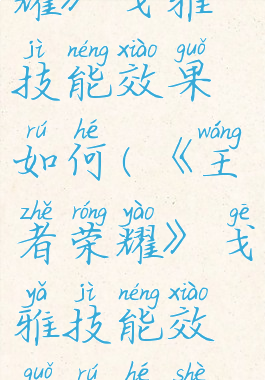 耀》 戈雅
jì néng xiào guǒ
技能效果
rú hé wáng
如何(《王
zhě róng yào gē
者荣耀》 戈
yǎ jì néng xiào
雅技能效
guǒ rú hé shè